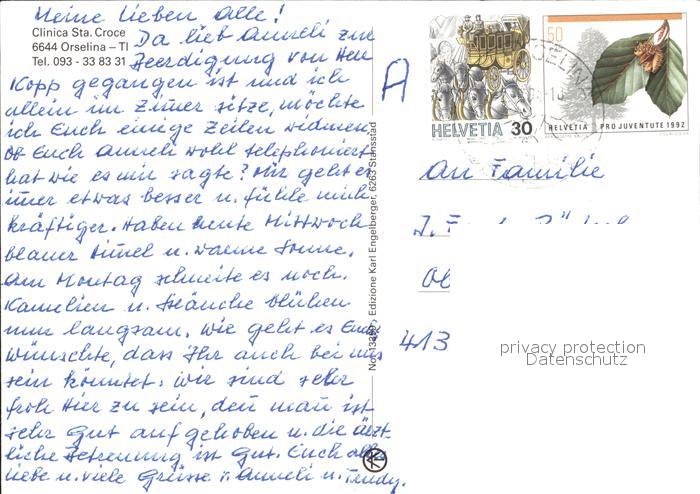 Meine Lieben Alle!
Clinica Sta. Croce
6644 Orselina – TI
Tel. 093 - 33 83 31
Da lieb Anneli zur
Beerdigung von Herr
Kopp gegangen ist und ich
allein im Zimer sitze, möchte
ich Euch einige Zeilen widmen.
Ob Euch Anneli wohl telephoniert
hat wie es mir sagte? Mir geht es
imer etwas besser u. fühle mich
kräftiger. Haben heute Mittwoch
blauer Himel u. warme Sonne.
Am Montag schneite es noch.
Kamelien u. Sträuche blühen
nun langsam. Wie geht es Euch
wünschte, dass Ihr auch bei uns
sein könntet. Wir sind sehr
froh hier zu sein, den man ist
sehr gut aufgehoben u. die ärzt-
liche Betreuung ist gut. Euch alle
liebe u. viele Grüsse v. Anneli u. Trudy.
No. 13390 Edizione Karl Engelberger, 6263 Stansstad
A
HELVETIA 30
50
HELVETIA PRO JUVENTUTE 1992
ORSELINA
An Familie
J.
Ob
413
privacy protection
Datenschutz